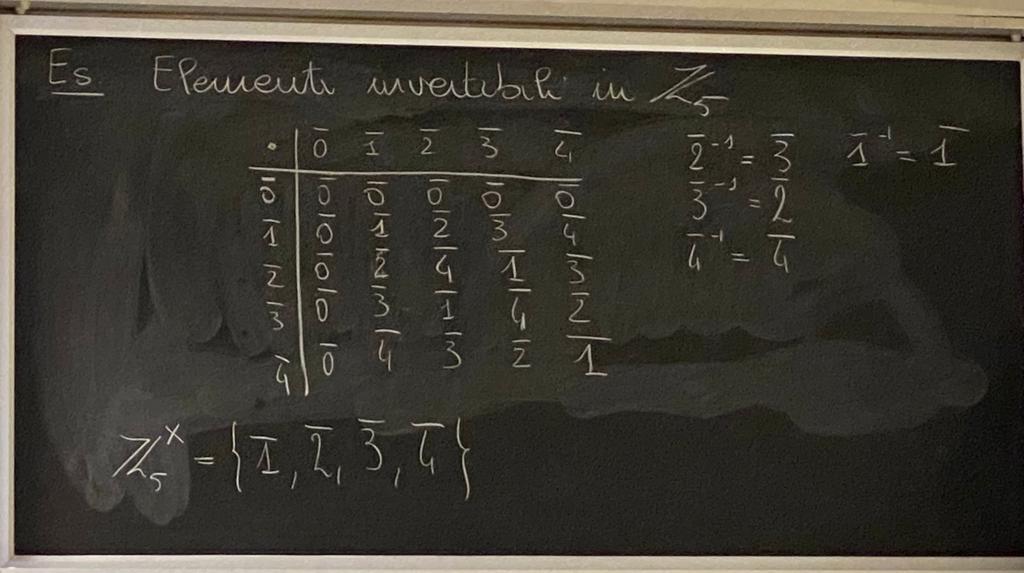 Es. Elementi invertibili in ℤ₅
· | 0̄ 1̄ 2̄ 3̄ 4̄
0̄ | 0̄ 0̄ 0̄ 0̄ 0̄
1̄ | 0̄ 1̄ 2̄ 3̄ 4̄
2̄ | 0̄ 2̄ 4̄ 1̄ 3̄
3̄ | 0̄ 3̄ 1̄ 4̄ 2̄
4̄ | 0̄ 4̄ 3̄ 2̄ 1̄
2̄⁻¹ = 3̄ 1̄⁻¹ = 1̄
3̄⁻¹ = 2̄
4̄⁻¹ = 4̄
ℤ₅ˣ = {1̄, 2̄, 3̄, 4̄}